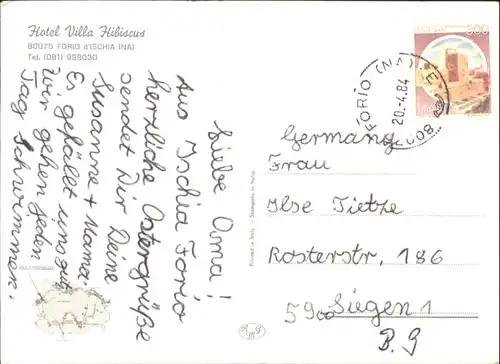 Hotel Villa Hibiscus
80075 FORIO d'ISCHIA (NA)
Tel. (081) 998030
Liebe Oma!
Aus Ischia Forio
herzliche Ostergrüße
sendet Dir Deine
Susanne + Mama.
Es gefällt uns gut
wir gehen jeden
Tag schwimmen.
FORIO (NA)
20.-4.84
80075
300
Germany
Frau
Ilse Tietze
Rosterstr. 186
5900 Siegen 1
B.G